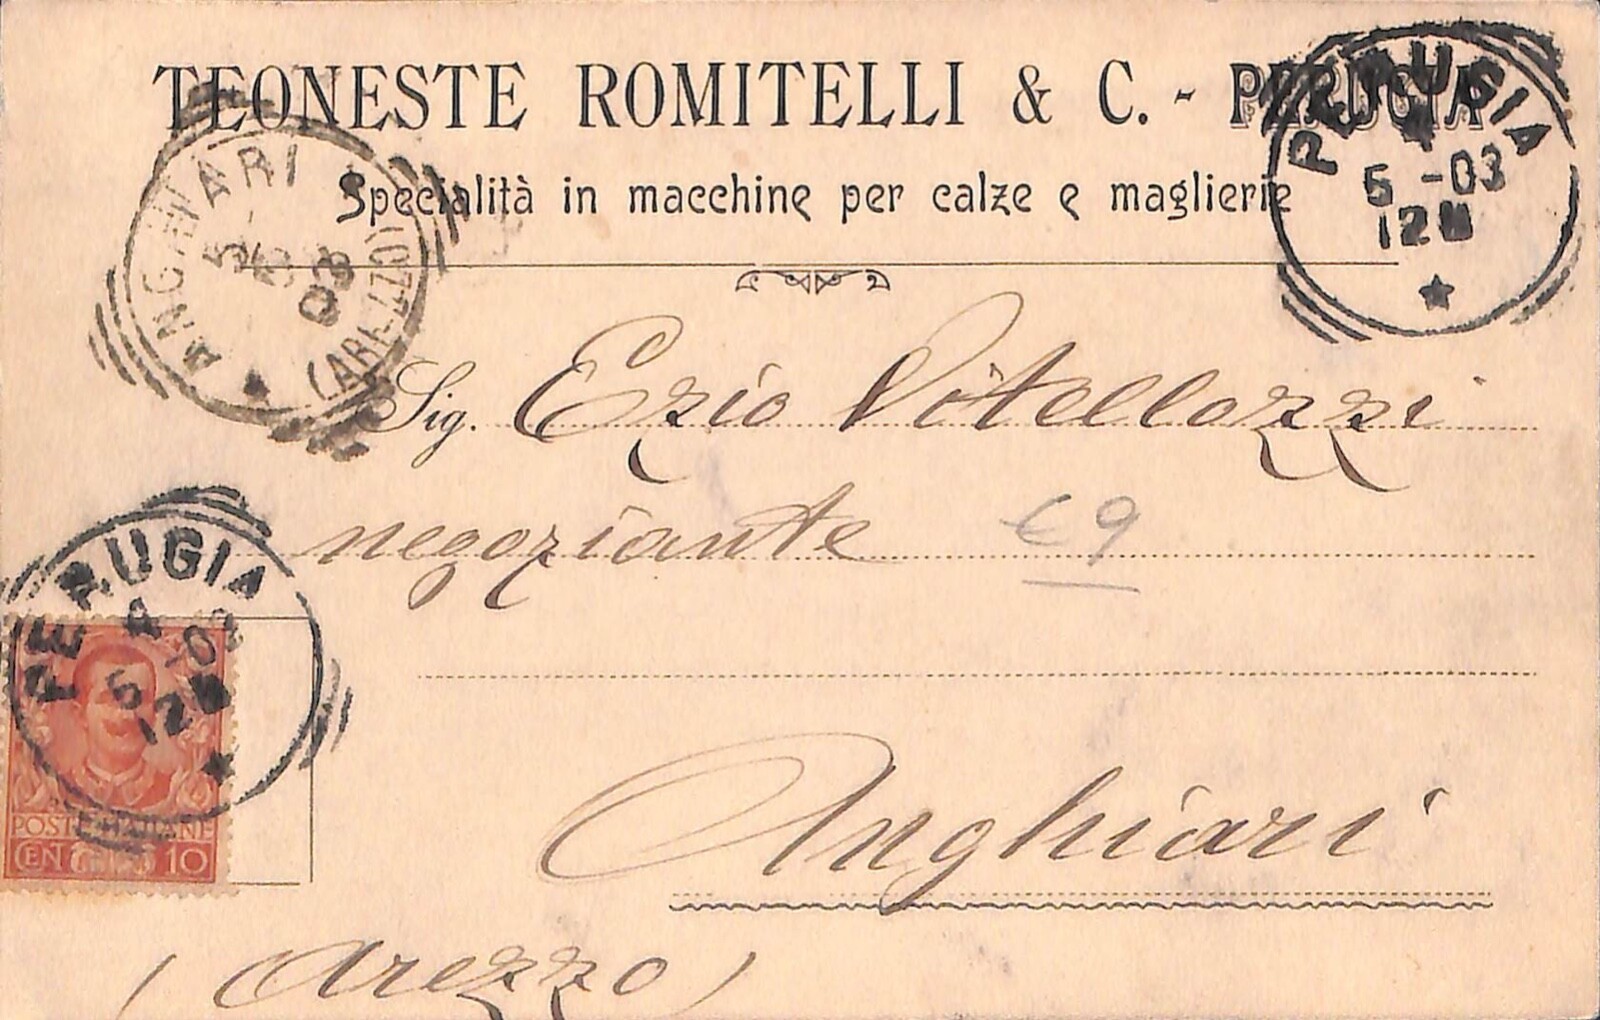 TEONESTE ROMITELLI & C. - PERUGIA
Specialità in macchine per calze e maglierie
PERUGIA
5 -03
12
ANGHIARI
5
03
(AREZZO)
Sig. Ezio Vitellozzi
negoziante
€9
PERUGIA
5 -03
12
POSTE ITALIANE
CENT. 10
Anghiari
(Arezzo)